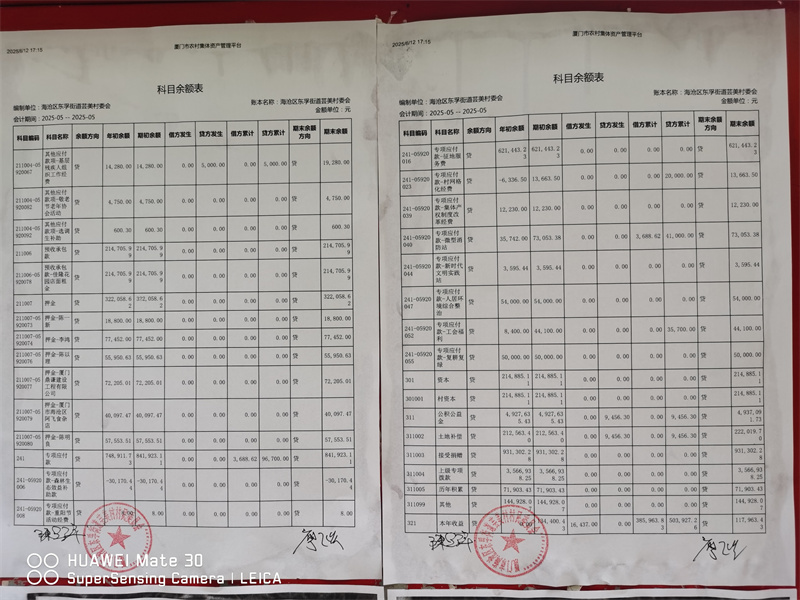 2025/6/12 17:15
厦门市农村集体资产管理平台
科目余额表
编制单位：海沧区东孚街道芸美村委会
账本名称：海沧区东孚街道芸美村委会
会计期间：2025-05 -- 2025-05
金额单位：元
科目编码 科目名称 余额方向 年初余额 期初余额 借方发生 贷方发生 借方累计 贷方累计 期末余额方向 期末余额
211004-05920067 其他应付款项-基层残疾人组织工作经费 贷 14,280.00 14,280.00 0.00 5,000.00 0.00 5,000.00 贷 19,280.00
211004-05920082 其他应付款项-敬老节老年协会活动 贷 4,750.00 4,750.00 0.00 0.00 0.00 0.00 贷 4,750.00
211004-05920092 其他应付款项-选调生补助 贷 600.30 600.30 0.00 0.00 0.00 0.00 贷 600.30
211006 预收承包款 贷 214,705.99 214,705.99 0.00 0.00 0.00 0.00 贷 214,705.99
211006-05920078 预收承包款-佳隆花园店面租金 贷 214,705.99 214,705.99 0.00 0.00 0.00 0.00 贷 214,705.99
211007 押金 贷 322,058.62 322,058.62 0.00 0.00 0.00 0.00 贷 322,058.62
211007-05920073 押金-陈一新 贷 18,800.00 18,800.00 0.00 0.00 0.00 0.00 贷 18,800.00
211007-05920074 押金-李鸿 贷 77,452.00 77,452.00 0.00 0.00 0.00 0.00 贷 77,452.00
211007-05920076 押金-陈以理 贷 55,950.63 55,950.63 0.00 0.00 0.00 0.00 贷 55,950.63
211007-05920077 押金-厦门鼎谦建设工程有限公司 贷 72,205.01 72,205.01 0.00 0.00 0.00 0.00 贷 72,205.01
211007-05920079 押金-厦门市海沧区阿飞食杂店 贷 40,097.47 40,097.47 0.00 0.00 0.00 0.00 贷 40,097.47
211007-05920080 押金-陈明良 贷 57,553.51 57,553.51 0.00 0.00 0.00 0.00 贷 57,553.51
241 专项应付款 贷 748,911.73 841,923.11 0.00 0.00 3,688.62 96,700.00 贷 841,923.11
241-05920006 专项应付款-森林生态效益补助款 贷 -30,170.44 -30,170.44 0.00 0.00 0.00 0.00 贷 -30,170.44
241-05920008 专项应付款-重阳节活动经费 贷 8.00 8.00 0.00 0.00 0.00 0.00 贷 8.00
2025/6/12 17:15
厦门市农村集体资产管理平台
科目余额表
编制单位：海沧区东孚街道芸美村委会
账本名称：海沧区东孚街道芸美村委会
会计期间：2025-05 -- 2025-05
金额单位：元
科目编码 科目名称 余额方向 年初余额 期初余额 借方发生 贷方发生 借方累计 贷方累计 期末余额方向 期末余额
241-05920016 专项应付款-征地服务费 贷 621,443.23 621,443.23 0.00 0.00 0.00 0.00 贷 621,443.23
241-05920023 专项应付款-村网格化经费 贷 -6,336.50 13,663.50 0.00 0.00 0.00 20,000.00 贷 13,663.50
241-05920039 专项应付款-集体产权制度改革经费 贷 12,230.00 12,230.00 0.00 0.00 0.00 0.00 贷 12,230.00
241-05920040 专项应付款-微型消防站 贷 35,742.00 73,053.38 0.00 0.00 3,688.62 41,000.00 贷 73,053.38
241-05920044 专项应付款-新时代文明实践站 贷 3,595.44 3,595.44 0.00 0.00 0.00 0.00 贷 3,595.44
241-05920047 专项应付款-人居环境综合整治 贷 54,000.00 54,000.00 0.00 0.00 0.00 0.00 贷 54,000.00
241-05920052 专项应付款-工会福利 贷 8,400.00 44,100.00 0.00 0.00 0.00 35,700.00 贷 44,100.00
241-05920055 专项应付款-复耕复绿 贷 50,000.00 50,000.00 0.00 0.00 0.00 0.00 贷 50,000.00
301 资本 贷 214,885.11 214,885.11 0.00 0.00 0.00 0.00 贷 214,885.11
301001 村资本 贷 214,885.11 214,885.11 0.00 0.00 0.00 0.00 贷 214,885.11
311 公积公益金 贷 4,927,635.43 4,927,635.43 0.00 9,456.30 0.00 9,456.30 贷 4,937,091.73
311002 土地补偿 贷 212,563.40 212,563.40 0.00 9,456.30 0.00 9,456.30 贷 222,019.70
311003 接受捐赠 贷 931,302.28 931,302.28 0.00 0.00 0.00 0.00 贷 931,302.28
311004 上级专项拨款 贷 3,566,938.25 3,566,938.25 0.00 0.00 0.00 0.00 贷 3,566,938.25
311005 历年积累 贷 71,903.43 71,903.43 0.00 0.00 0.00 0.00 贷 71,903.43
311099 其他 贷 144,928.07 144,928.07 0.00 0.00 0.00 0.00 贷 144,928.07
321 本年收益 贷 0.00 134,400.43 16,437.00 0.00 385,963.83 503,927.26 贷 117,963.43
HUAWEI Mate 30
SuperSensing Camera | LEICA